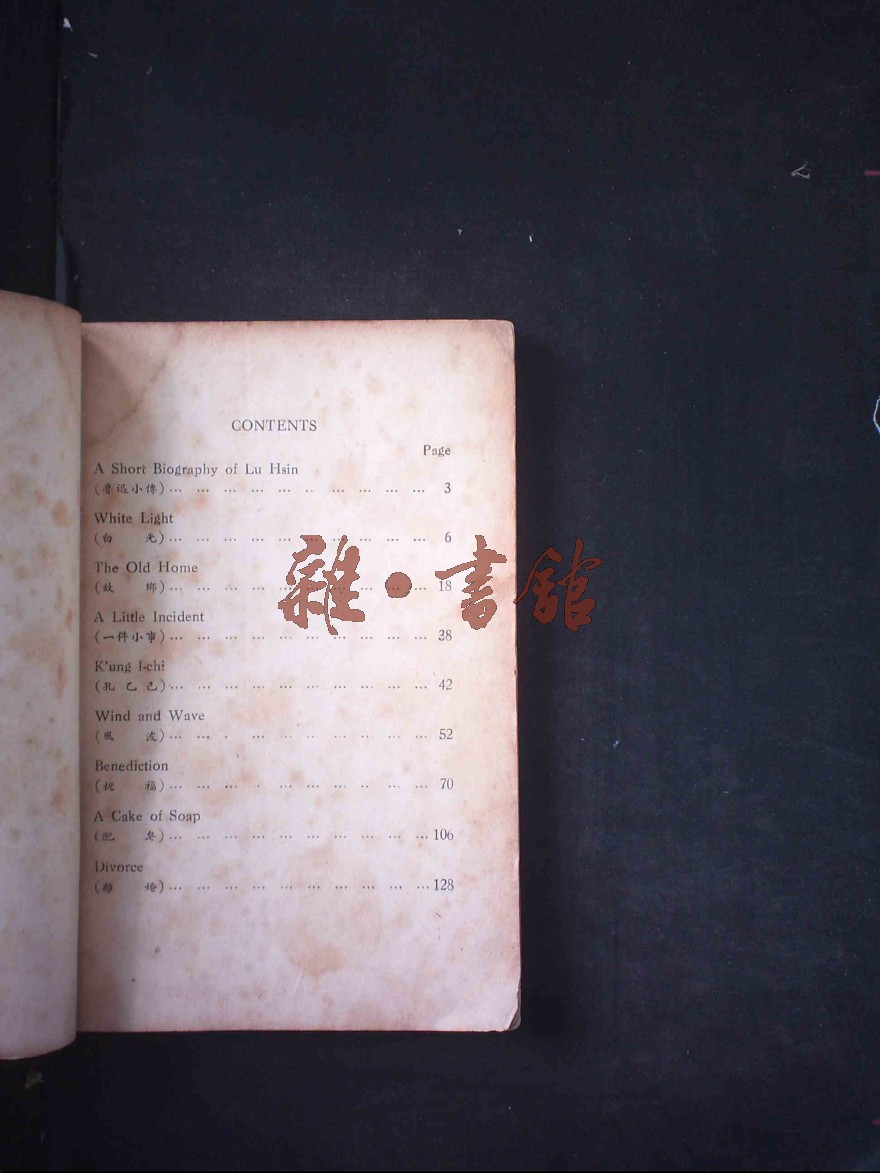 CONTENTS
Page
A Short Biography of Lu Hsin
(魯迅小傳)... ... ... ... ... .. ... ... ... ... 3
White Light
(白 光)... ... ... ... ... ... ... ... ... ... 6
The Old Home
(故 鄉)... ... ... ... ... ... ... ... ... ... 18
A Little Incident
(一件小事)... ... ... ... ... ... ... ... ... ... 38
K'ung I-chi
(孔乙己)... ... ... ... ... ... ... ... ... ... 42
Wind and Wave
(風 波)... ... . ... ... .. ... ... ... ... 52
Benediction
(祝 福)... ... ... ... ... ... ... ... ... ... 70
A Cake of Soap
(肥 皂)... ... ... ... ... ... ... ... ... ... 106
Divorce
(離 婚)... ... ... ... ... ... ... ... ... ... 128
雜•書館